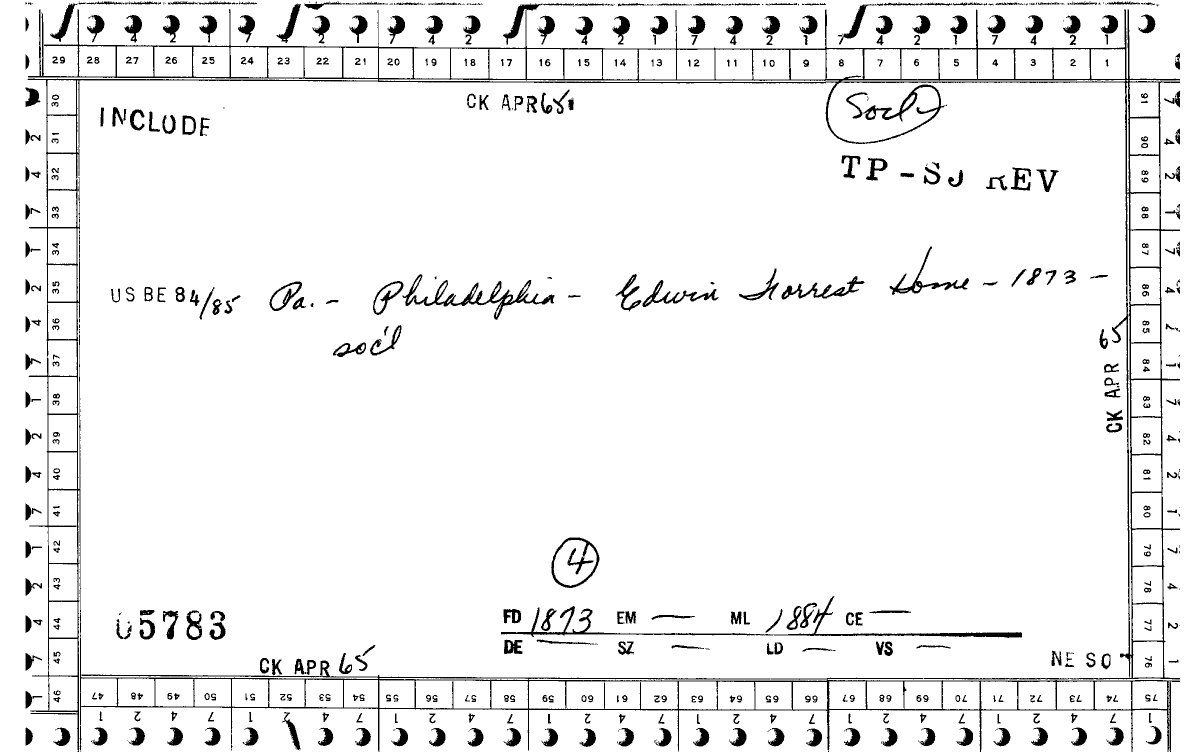 7 4 2 1 7 4 2 1 7 4 2 1 7 4 2 1 7 4 2 1 7 4 2 1 7 4 2 1
29 28 27 26 25 24 23 22 21 20 19 18 17 16 15 14 13 12 11 10 9 8 7 6 5 4 3 2 1
CK APR 65
INCLUDE
TP-SJ REV
US BE 84/85 Pa. - Philadelphia - Edwin Forrest Home - 1873 -
soc'l
CK APR 65
4
05783
FD 1873 EM — ML 1884 CE —
DE — SZ — LD — VS —
CK APR 65
NE SO
30 31 32 33 34 35 36 37 38 39 40 41 42 43 44 45 46
91 90 89 88 87 86 85 84 83 82 81 80 79 78 77 76 75
47 48 49 50 51 52 53 54 55 56 57 58 59 60 61 62 63 64 65 66 67 68 69 70 71 72 73 74 75
1 2 4 7 1 2 4 7 1 2 4 7 1 2 4 7 1 2 4 7 1 2 4 7 1 2 4 7 1